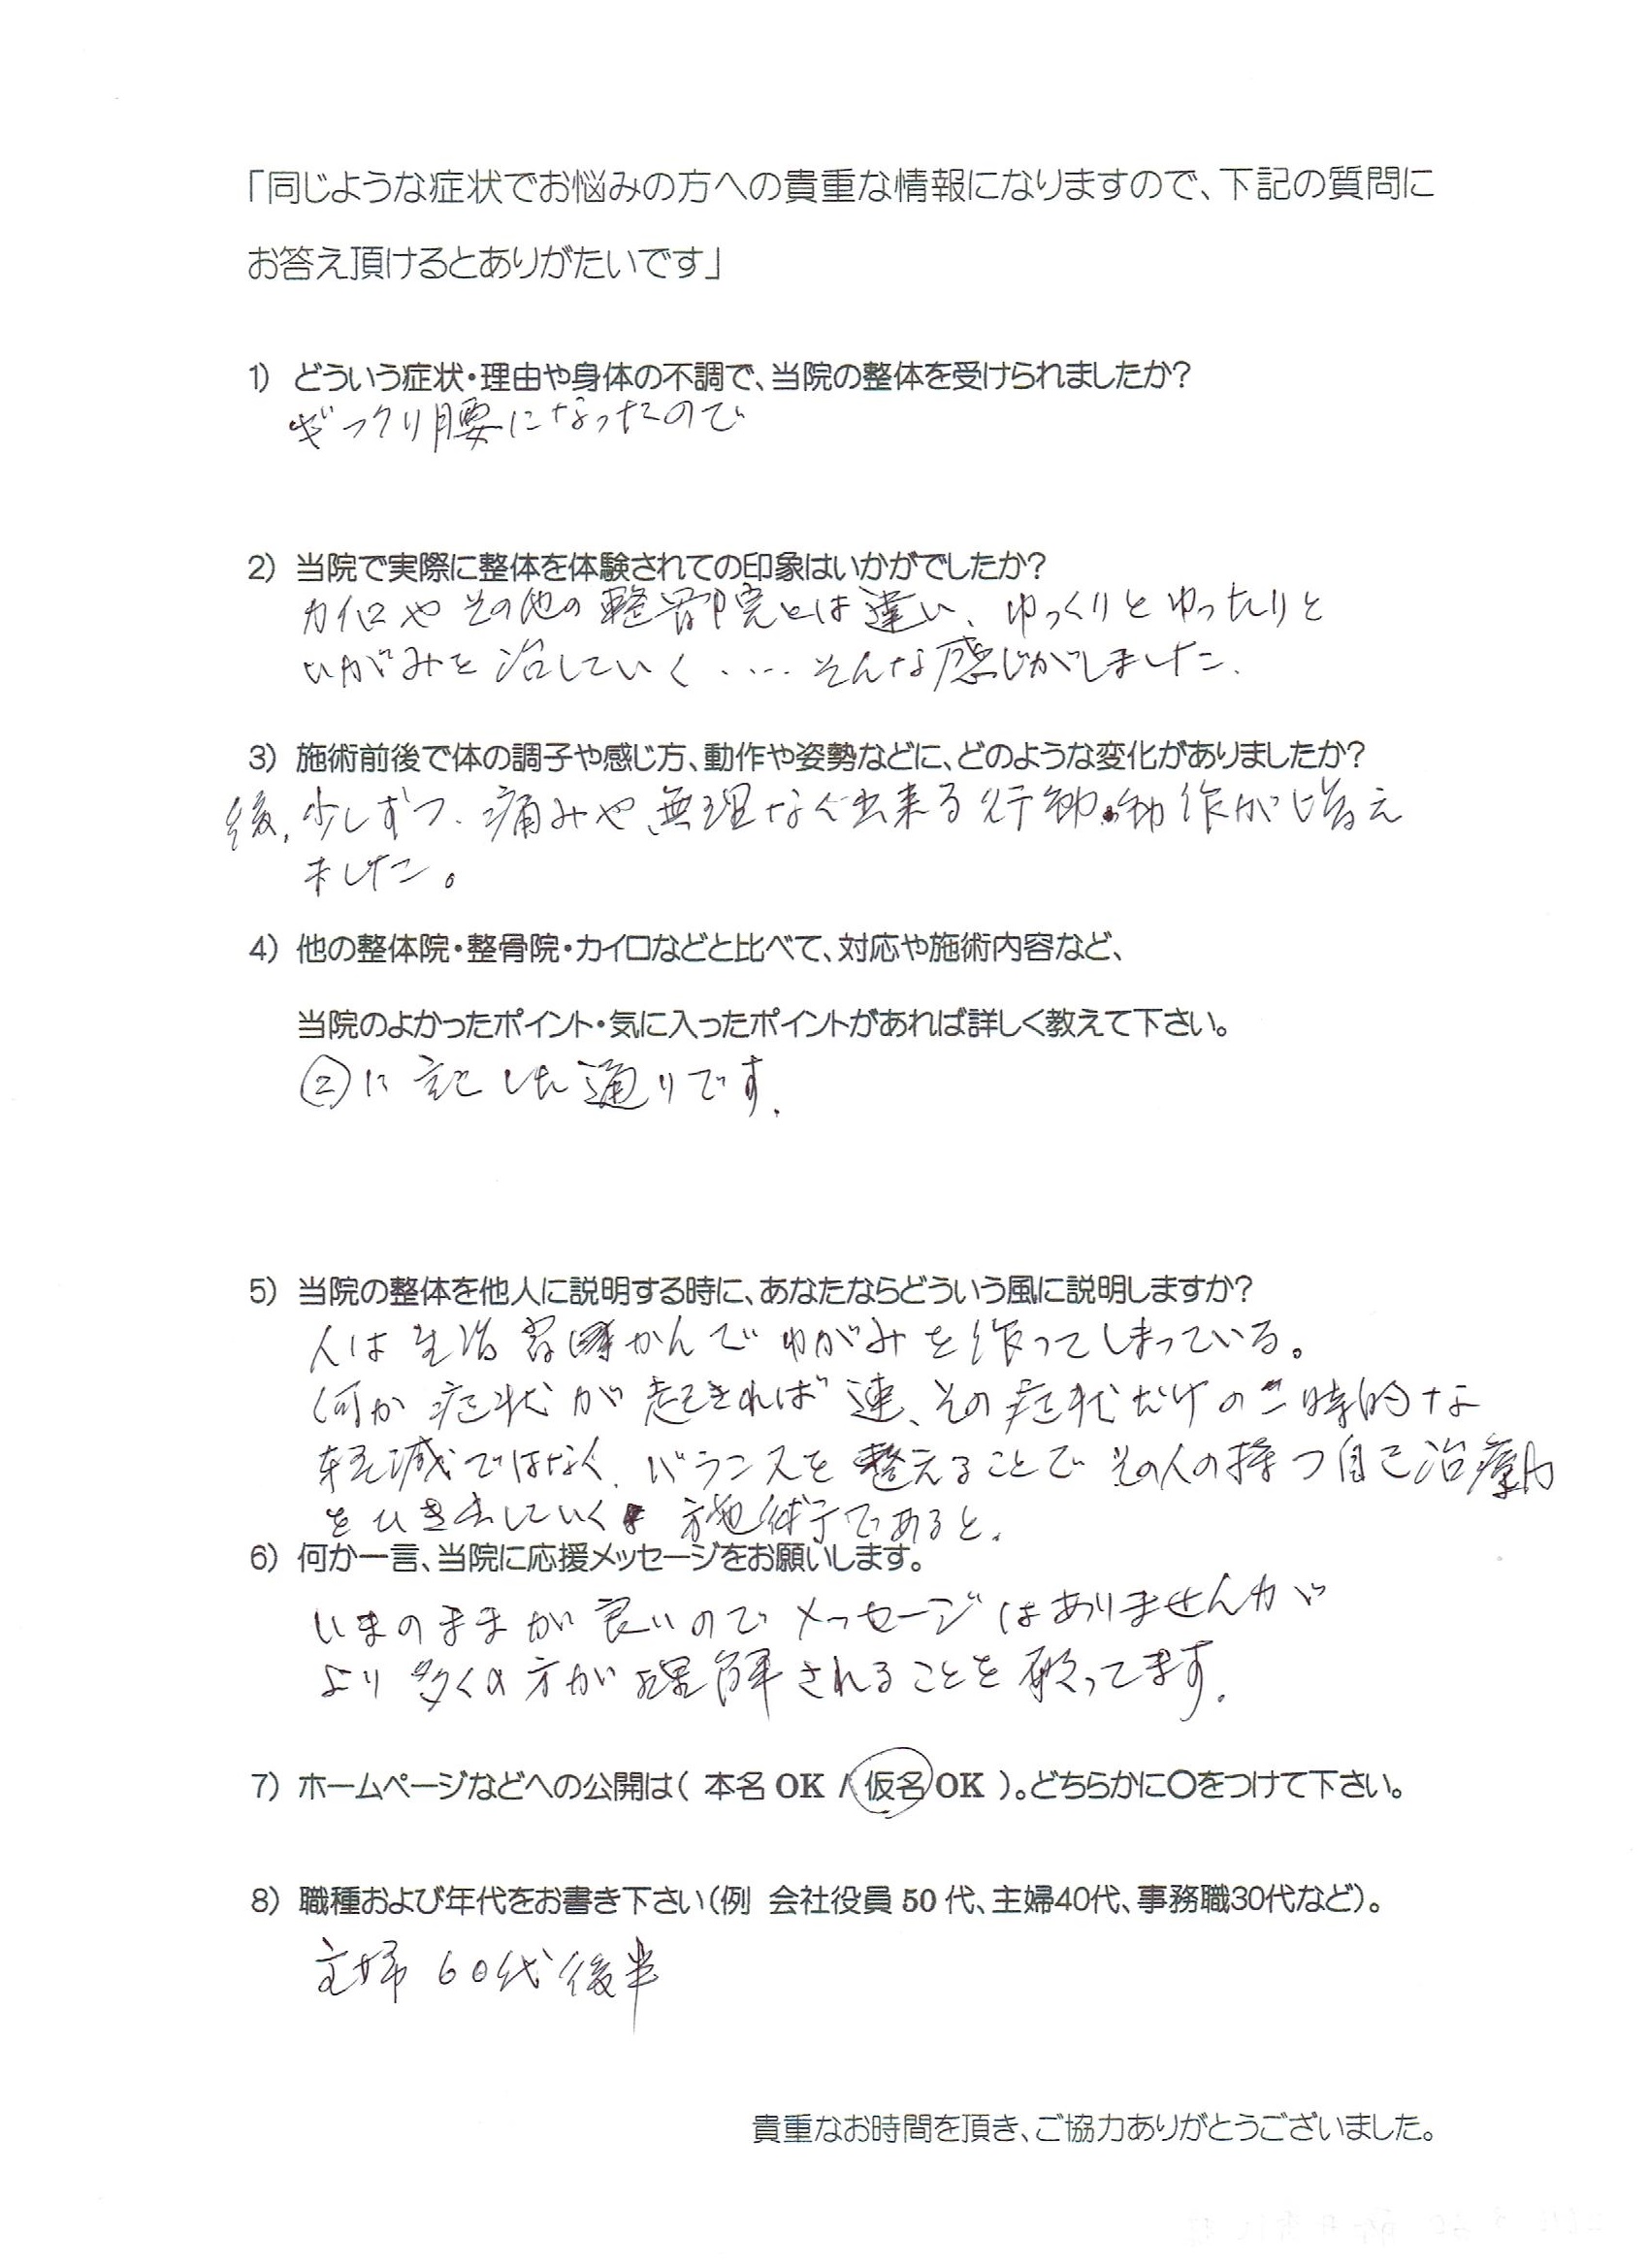 「同じような症状でお悩みの方への貴重な情報になりますので、下記の質問に
お答え頂けるとありがたいです」
1) どういう症状・理由や身体の不調で、当院の整体を受けられましたか?
ぎっくり腰になったので
2) 当院で実際に整体を体験されての印象はいかがでしたか?
カイロやその他の整骨院とは違い、ゆっくりとゆったりと
ひがみを治していく....そんな感じがしました.
3) 施術前後で体の調子や感じ方、動作や姿勢などに、どのような変化がありましたか?
後,少しずつ、痛みや無理なく出来る行動.動作が増え
ました。
4) 他の整体院・整骨院・カイロなどと比べて、対応や施術内容など、
当院のよかったポイント・気に入ったポイントがあれば詳しく教えて下さい。
②に記した通りです.
5) 当院の整体を他人に説明する時に、あなたならどういう風に説明しますか?
人は生活習かんでゆがみを作ってしまっている。
何か症状が起きれば、その症状だけの一時的な
軽減ではなく、バランスを整えることでその人の持つ自己治療力
をひき出していく施術であると.
6) 何か一言、当院に応援メッセージをお願いします。
いまのままが良いのでメッセージはありませんが
より多くの方が理解されることを願ってます.
7) ホームページなどへの公開は( 本名 OK / 仮名 OK )。どちらかに〇をつけて下さい。
8) 職種および年代をお書き下さい(例 会社役員 50 代、主婦40代、事務職30代など)。
主婦 60代後半
貴重なお時間を頂き、ご協力ありがとうございました。